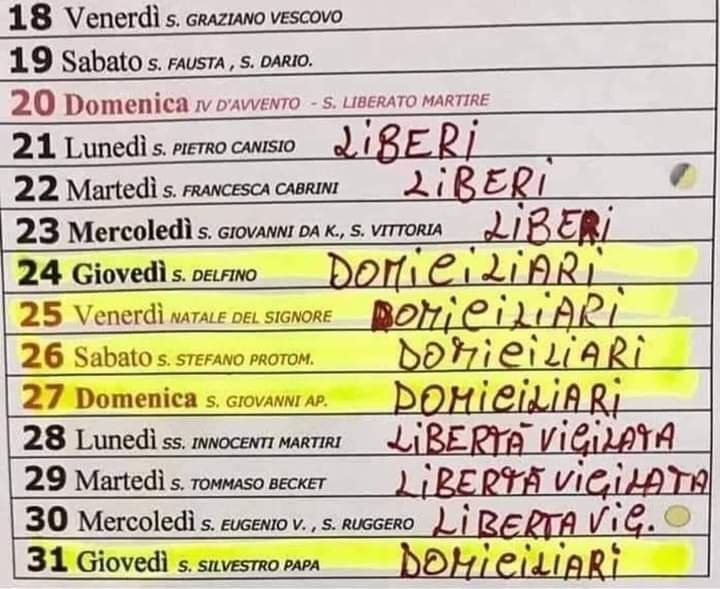 18 Venerdì S. GRAZIANO VESCOVO
19 Sabato S. FAUSTA , S. DARIO.
20 Domenica IV D'AVVENTO - S. LIBERATO MARTIRE
21 Lunedì S. PIETRO CANISIO LiBERi
22 Martedì S. FRANCESCA CABRINI LiBERi
23 Mercoledì S. GIOVANNI DA K., S. VITTORIA LiBERi
24 Giovedì S. DELFINO DOMiCiLiARi
25 Venerdì NATALE DEL SIGNORE DOMiCiLiARi
26 Sabato S. STEFANO PROTOM. DOMiCiLiARi
27 Domenica S. GIOVANNI AP. DOMiCiLiARi
28 Lunedì SS. INNOCENTI MARTIRI LiBERTÀ ViGiLATA
29 Martedì S. TOMMASO BECKET LiBERTÀ ViGiLATA
30 Mercoledì S. EUGENIO V. , S. RUGGERO LiBERTA ViG.
31 Giovedì S. SILVESTRO PAPA DOMiCiLiARi